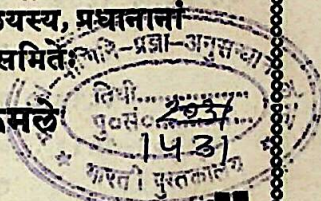 यस्य, प्रधानानां
समितेः
मले
प्रज्ञा-अनुसन्धा
तिथी..................
पु०सं० 2037
1431
भारती पुस्तकालय